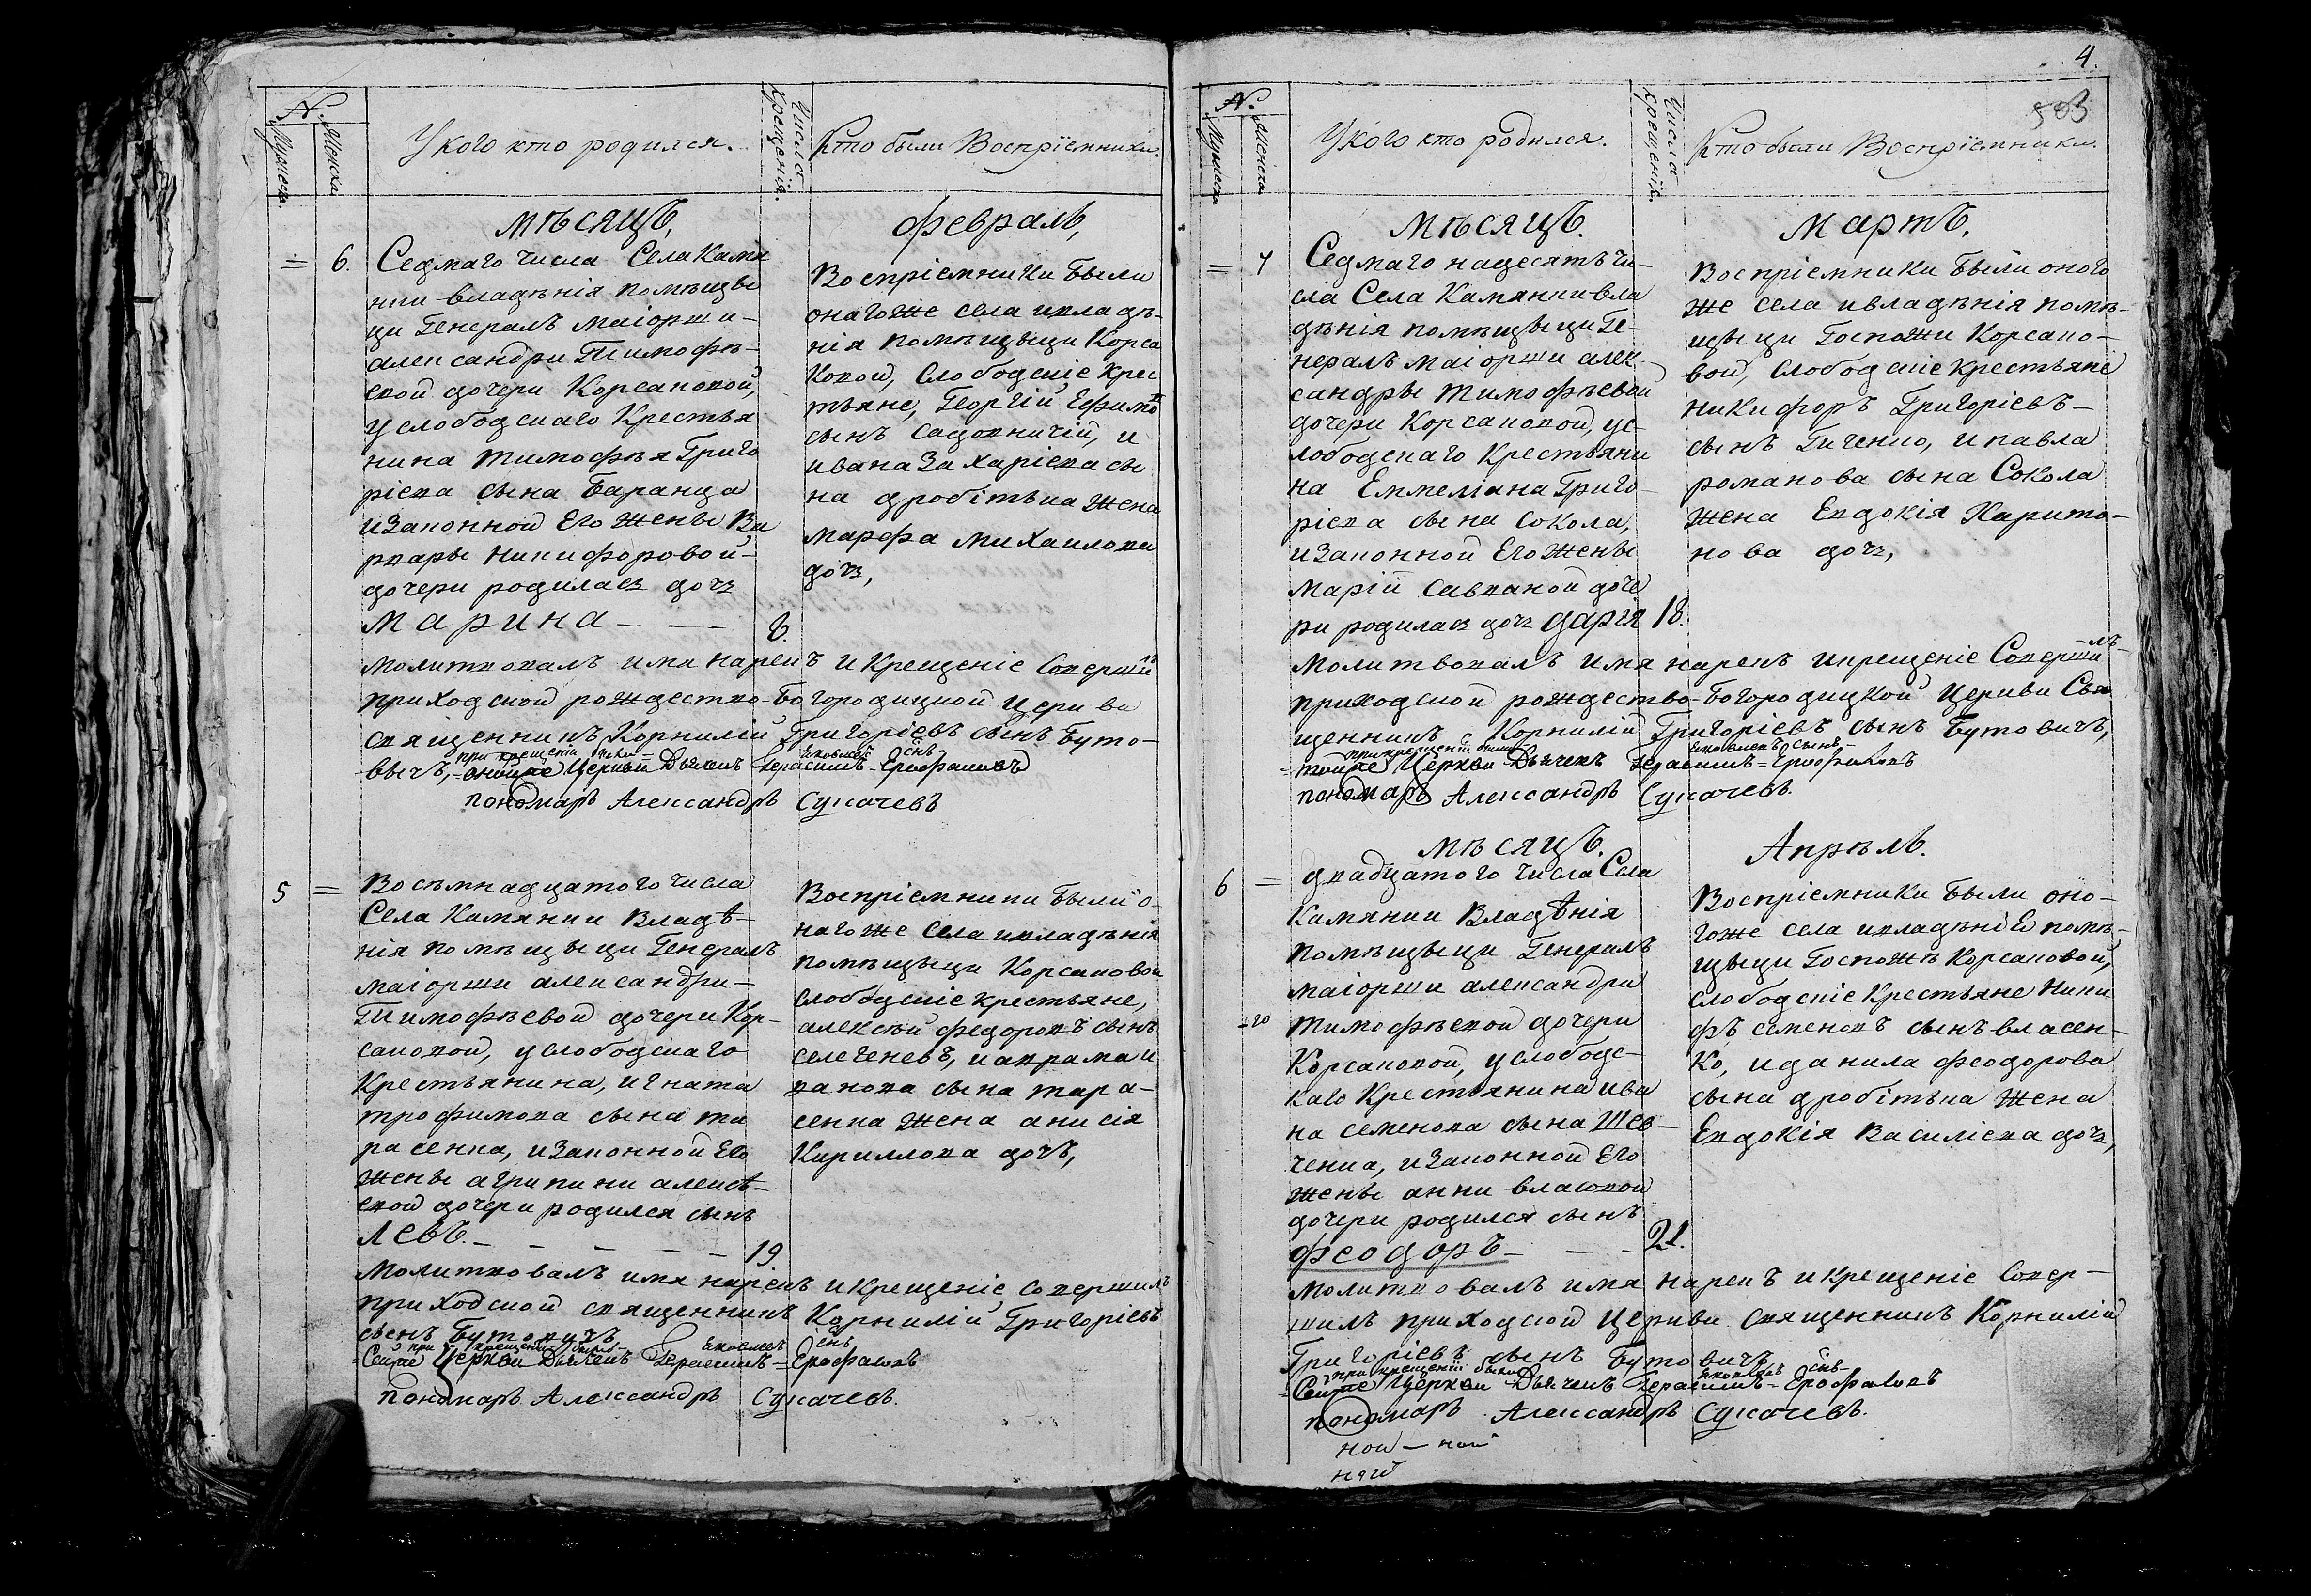 №.
Мужеска.
Женска.
У кого кто родился.
Числа крещенія.
Кто были Воспріемники.
мѣсяцъ,
февраль,
=
6.
Седмаго числа Села Камя
нки владѣнія помѣщы
ци Генералъ маіорши –
александри Тимофѣ–
евой дочери Корсаковой,
услободскаго Крестья
нина тимофѣя Григо
ріева сына Баранца
изаконной Его жены Ва
рвары никифоровой –
дочери родилась дочь
Марина – – –
8.
Воспріемники были
онагоже села ивладѣ–
нія помѣщыци Корса
ковой, слободскіе крес
тьяне, Георгій Ефимо
сынъ садовничій, и
ивана Захаріева сы
на дробітька жена
марфа михаилова
дочь,
молитвовалъ имя нарекъ икрещеніе соверши
приходской рождество-Богородицкой церкви
священникъ Корнилій Григоріевъ сынъ Буто–
вычъ,
при крещеніи
Церкви Дьячекъ Герасимъ = Ерофаловъ
пономаръ Александръ Сукачевъ
5
=
Восѣмнадцатого числа
Села Камянки Владѣ–
нія помѣщыци Генералъ
маіорши александри –
Тимофѣевой дочери Кор–
саковой, услободскаго
Крестьянина, игната
трофимова сына та
расенка, изаконной Его
жены агрипини алексѣ–
евой дочери родился сынъ
Левъ. – – – – –
19.
Воспріемники были о–
нагоже села ивладѣнія
помѣщыци Корсаковой
слободскіе крестьяне,
алексѣй федоровъ сынъ
селегеневъ, иаврама и
ванова сына тара–
сенка жена анисія
Кириллова дочъ,
Молитвовалъ имя нарекъ икрещеніе совершилъ
приходской священникъ Корнилій Григоріевъ
сынъ Бутовичъ
при крещеніи
Церкви Дьячекъ Герасимъ = Ерофаловъ
пономаръ Александръ Сукачевъ.
4.
503
№.
Мужеска.
Женска
У кого кто родился.
Числа крещенія.
Кто были Воспріемники.
мѣсяцъ.
Мартъ.
=
7
Седмаго надесять чи–
сла Села Камянки вла
дѣнія помѣщыци Ге–
нералъ маіорши алек–
сандры тимофѣевой
дочери Корсаковой, ус–
лободскаго Крестьяни
на Еммеліана Григо–
ріева сына сокола,
изаконной Его жены
марій савваной доче
ри родилась дочь дарія
18.
Воспріемники были оного
же села ивладѣнія помѣ–
щыци Госпожи Корсако–
вой, слободскіе крестьяне
никифоръ Григоріевъ –
сынъ Гиченко, и павла
романова сына Сокола
жена Евдокія Харито–
нова дочь,
молитвовалъ имя нарекъ икрещеніе соверши–лъ
приходской рождество-Богородицкой церкви Свя
щенникъ Корнилій Григоріевъ сынъ Бутовичъ,
при крещеніи были
Церкви Дьячекъ Герасимъ = Ерофаловъ
пономаръ Александръ Сукачевъ.
мѣсяцъ.
Апрѣль.
6
=
двадцатого числа Села
Камянки Владѣнія
помѣщыци Генералъ
маіорши александри
=20
тимофѣевой дочери
Корсаковой, услободс–
каго Крестьянина ива
на семенова сына Шев–
ченка, изаконной Его
жены анни власовой
дочери родился сынъ
Феодоръ – – –
21.
Воспріемники были оно–
гоже села ивладѣніе помѣ–
щыци Госпожѣ Корсаковой,
слободскіе Крестьяне Ники
фъ семеновъ сынъ власен–
ко, иданила феодорова
сына дробітька жена
Евдокія Василіева дочь,
молитвовалъ имя нарекъ икрещеніе совер–
шилъ приходской церкви священникъ Корнилій
Григоріевъ сынъ Бутовичъ
при крещеніи были
Церкви Дьячекъ Герасимъ = Ерофаловъ
пономаръ Александръ Сукачевъ.